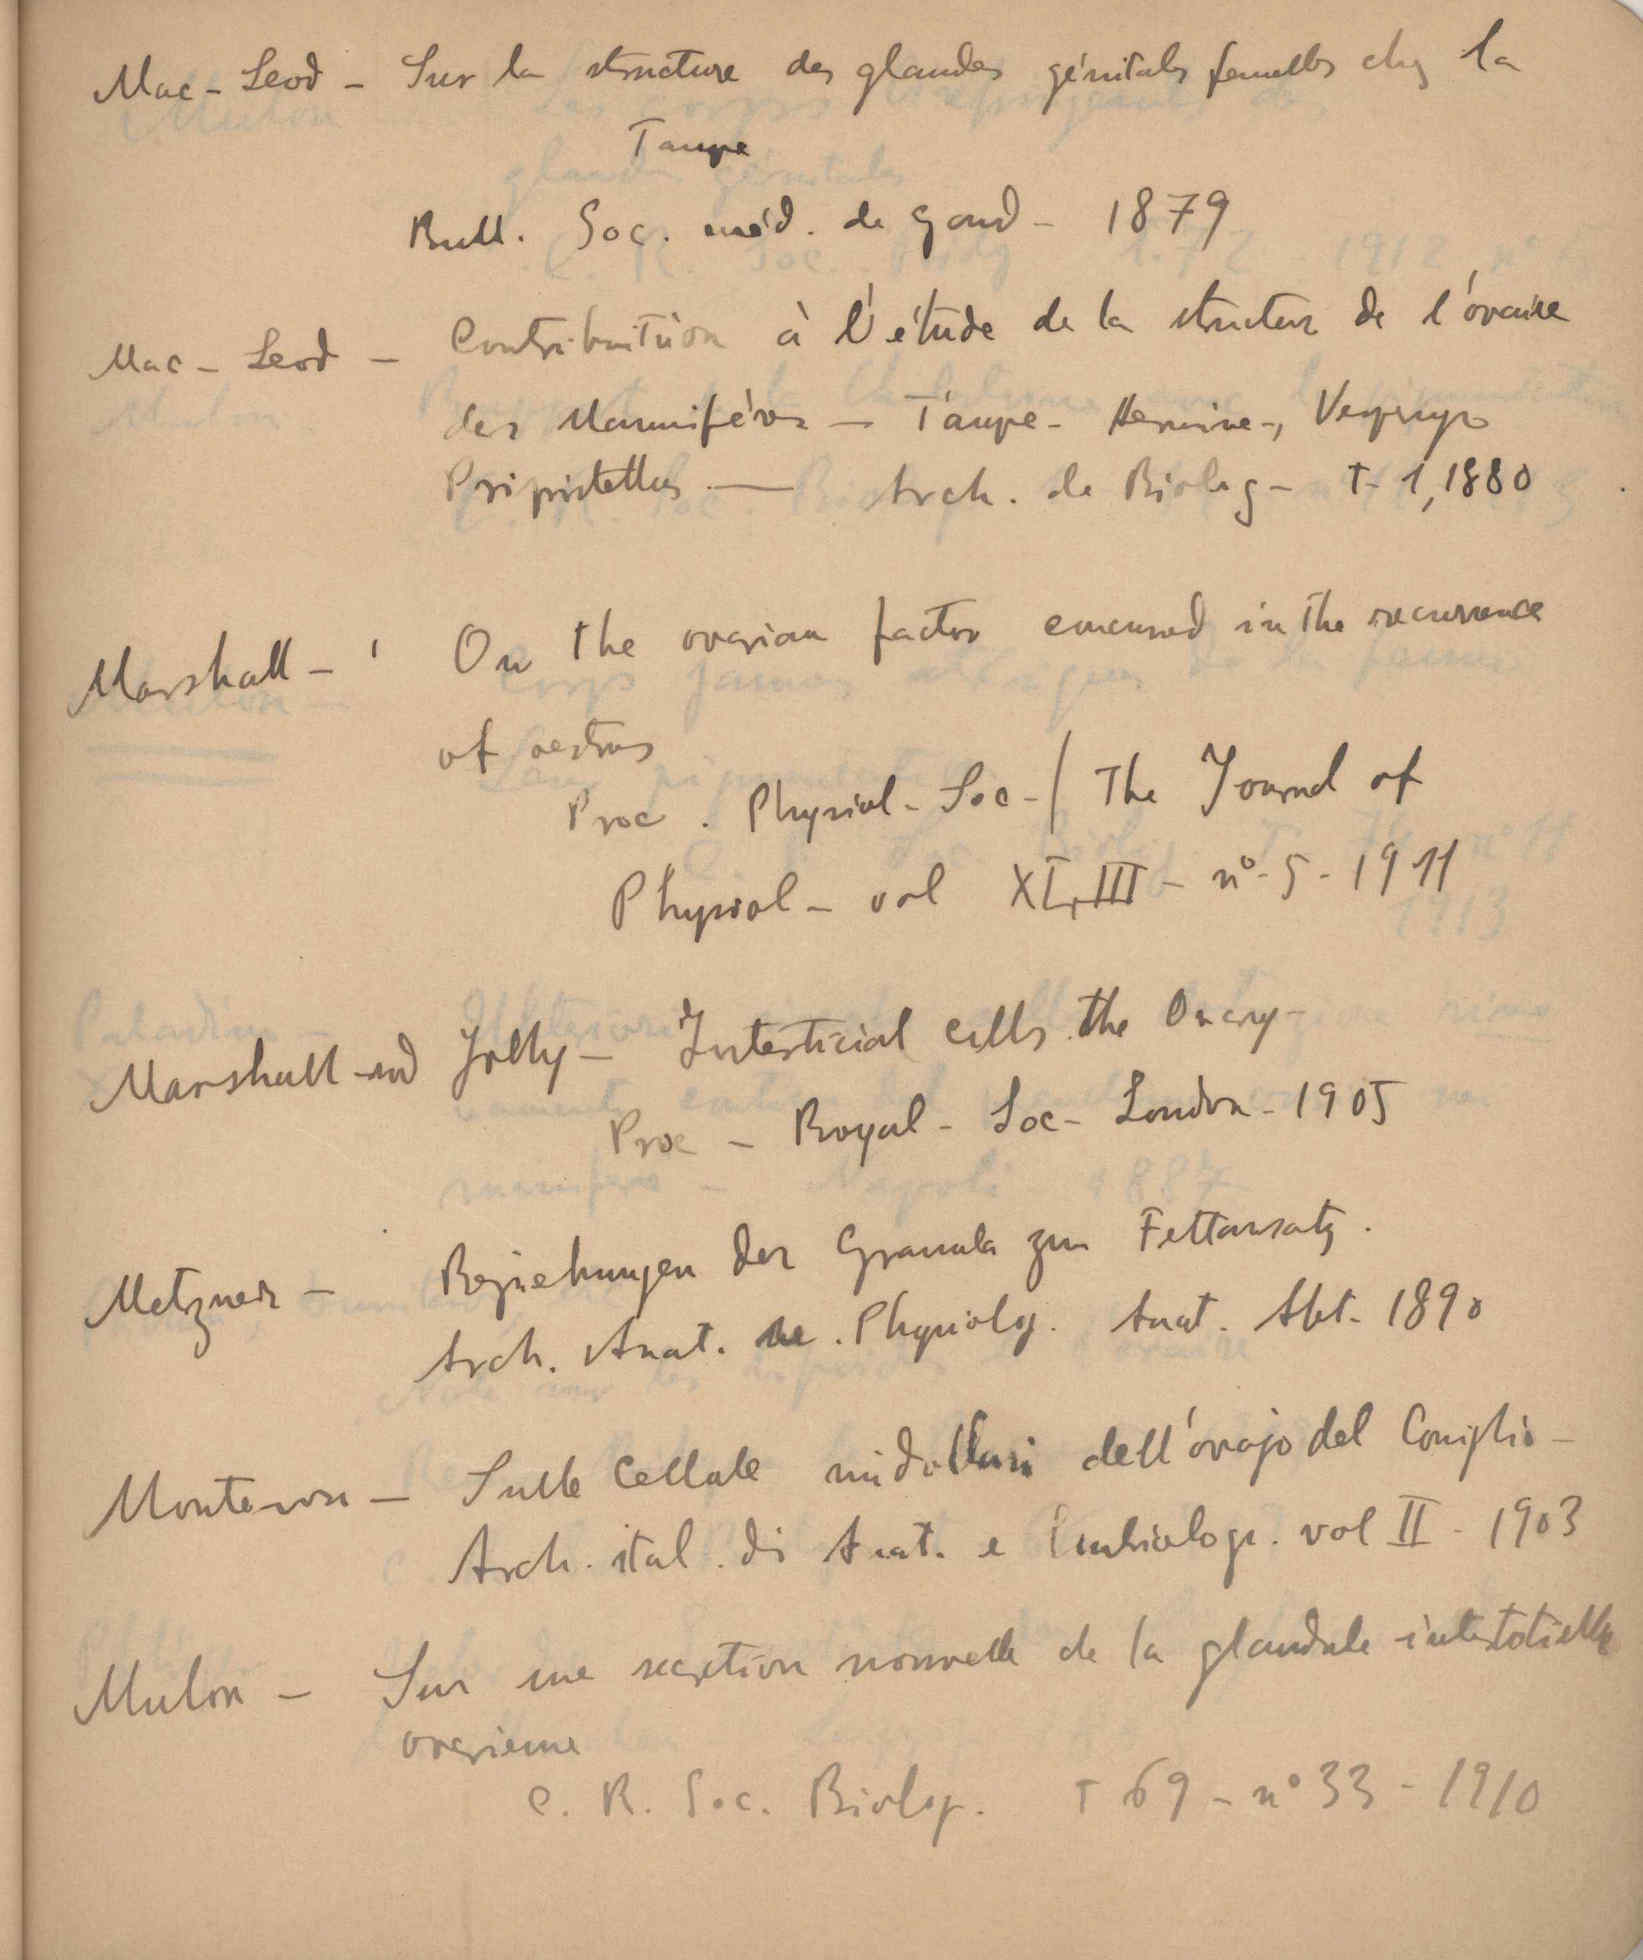 Mac-Leod - Sur la structure des glandes génitales femelles chez la
Taupe
Bull. Soc. méd. de Gand - 1879
Mac-Leod - Contribuition à l'étude de la structure de l'ovaire
des Mammifères - Taupe - Hermine -, Vesperugo
Pripistellus — Arch. de Biolog - T-1, 1880
Marshall - On the ovarian factor concerned in the recurrence
of oestrus
Proc. Physiol - Soc - / The Journal of
Physiol - vol XLIII - nº-5-1911
Marshall and Jolly - Intersticial cells the Ovary -
Proc - Royal - Soc - London - 1905
Metzner - Beziehungen der Granula zum Fettansatz.
Arch. Anat. . Physiolog. Anat. Abt. 1890
Sulle Cellule midollari dell'ovajo del Coniglio -
Arch. ital. di Anat. e Embriolog. vol II - 1903
Mulon - Sur une secretion nouvelle de la glandule interstitielle
ovarienne
C. R. Soc. Biolog. T 69 - nº 33 - 1910